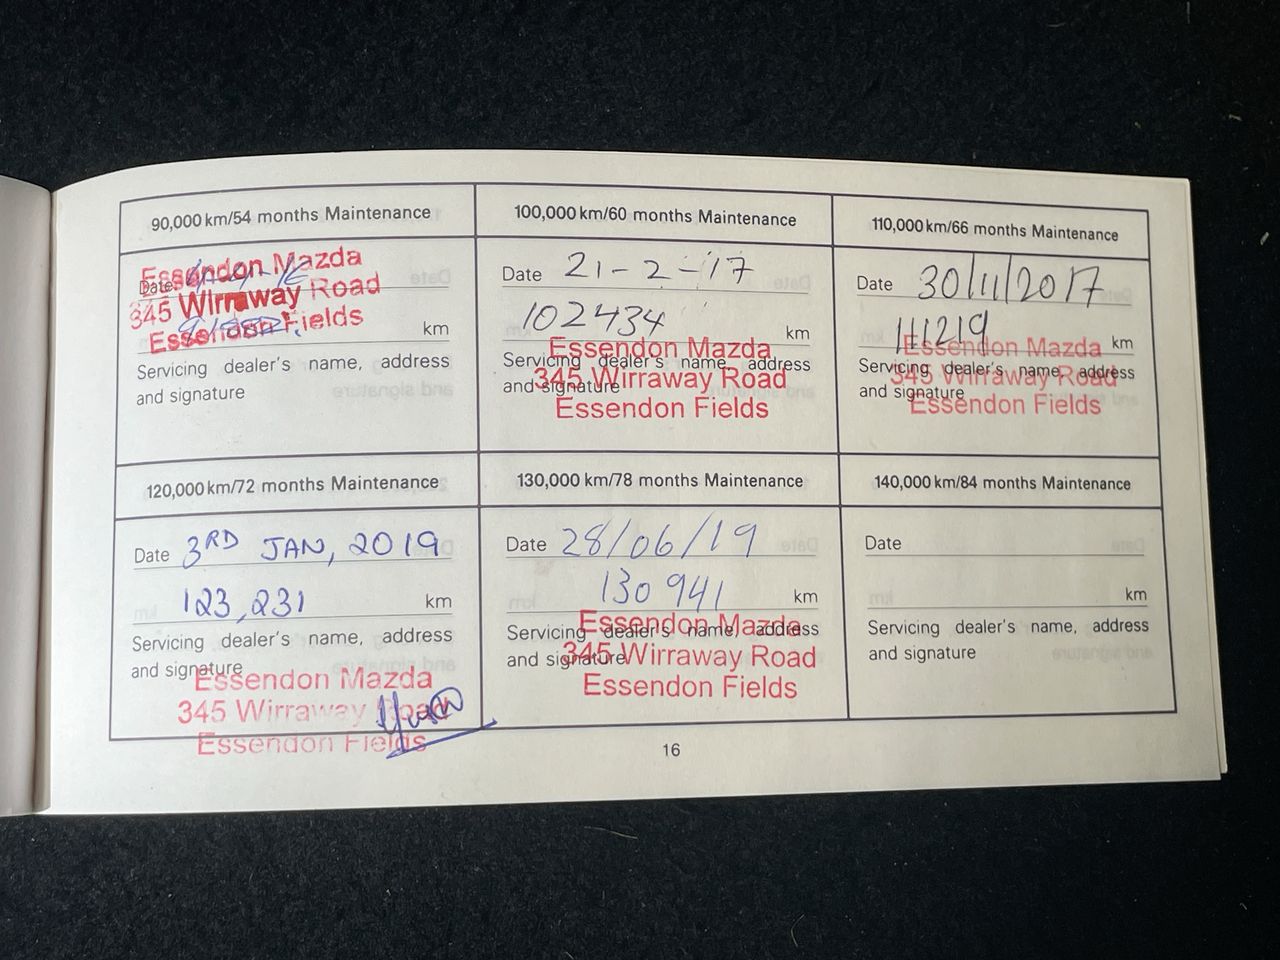 90,000 km/54 months Maintenance
Date
km
Servicing dealer's name, address
and signature
Essendon Mazda
345 Wirraway Road
Essendon Fields
100,000 km/60 months Maintenance
Date 21-2-17
102434 km
Servicing dealer's name, address
and signature
Essendon Mazda
345 Wirraway Road
Essendon Fields
110,000 km/66 months Maintenance
Date 30/11/2017
111219 km
Servicing dealer's name, address
and signature
Essendon Mazda
345 Wirraway Road
Essendon Fields
120,000 km/72 months Maintenance
Date 3RD JAN, 2019
123,231 km
Servicing dealer's name, address
and signature
Essendon Mazda
345 Wirraway Road
Essendon Fields
130,000 km/78 months Maintenance
Date 28/06/19
130 941 km
Servicing dealer's name, address
and signature
Essendon Mazda
345 Wirraway Road
Essendon Fields
140,000 km/84 months Maintenance
Date
km
Servicing dealer's name, address
and signature
16